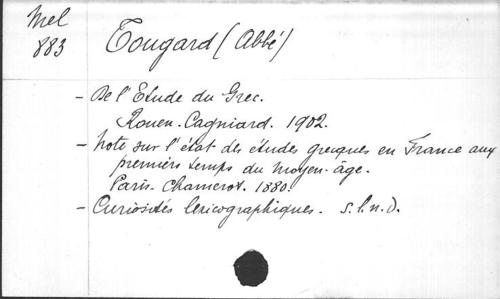 Mel
883
Tougard (Abbé)
- De l'Etude du Grec.
Rouen. Cagniard. 1902.
- Note sur l'état des études grecques en France aux
premiers temps du moyen-âge.
Paris. Chamerot. 1880.
- Curiosités lexicographiques. s.l.n.d.